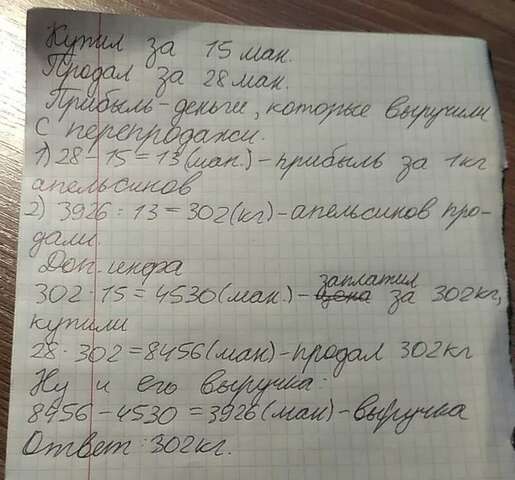 Купил за 15 ман.
Продал за 28 ман.
Прибыль - деньги, которые выручили
с перепродажи.
1) 28 - 15 = 13 (ман.) - прибыль за 1 кг
апельсинов
2) 3926 : 13 = 302 (кг) - апельсинов про-
дали.
Доп. инфа
302 · 15 = 4530 (ман.) - цена заплатил за 302 кг,
купили
28 · 302 = 8456 (ман) - продал 302 кг
Ну и его выручка:
8456 - 4530 = 3926 (ман) - выручка
Ответ: 302 кг.